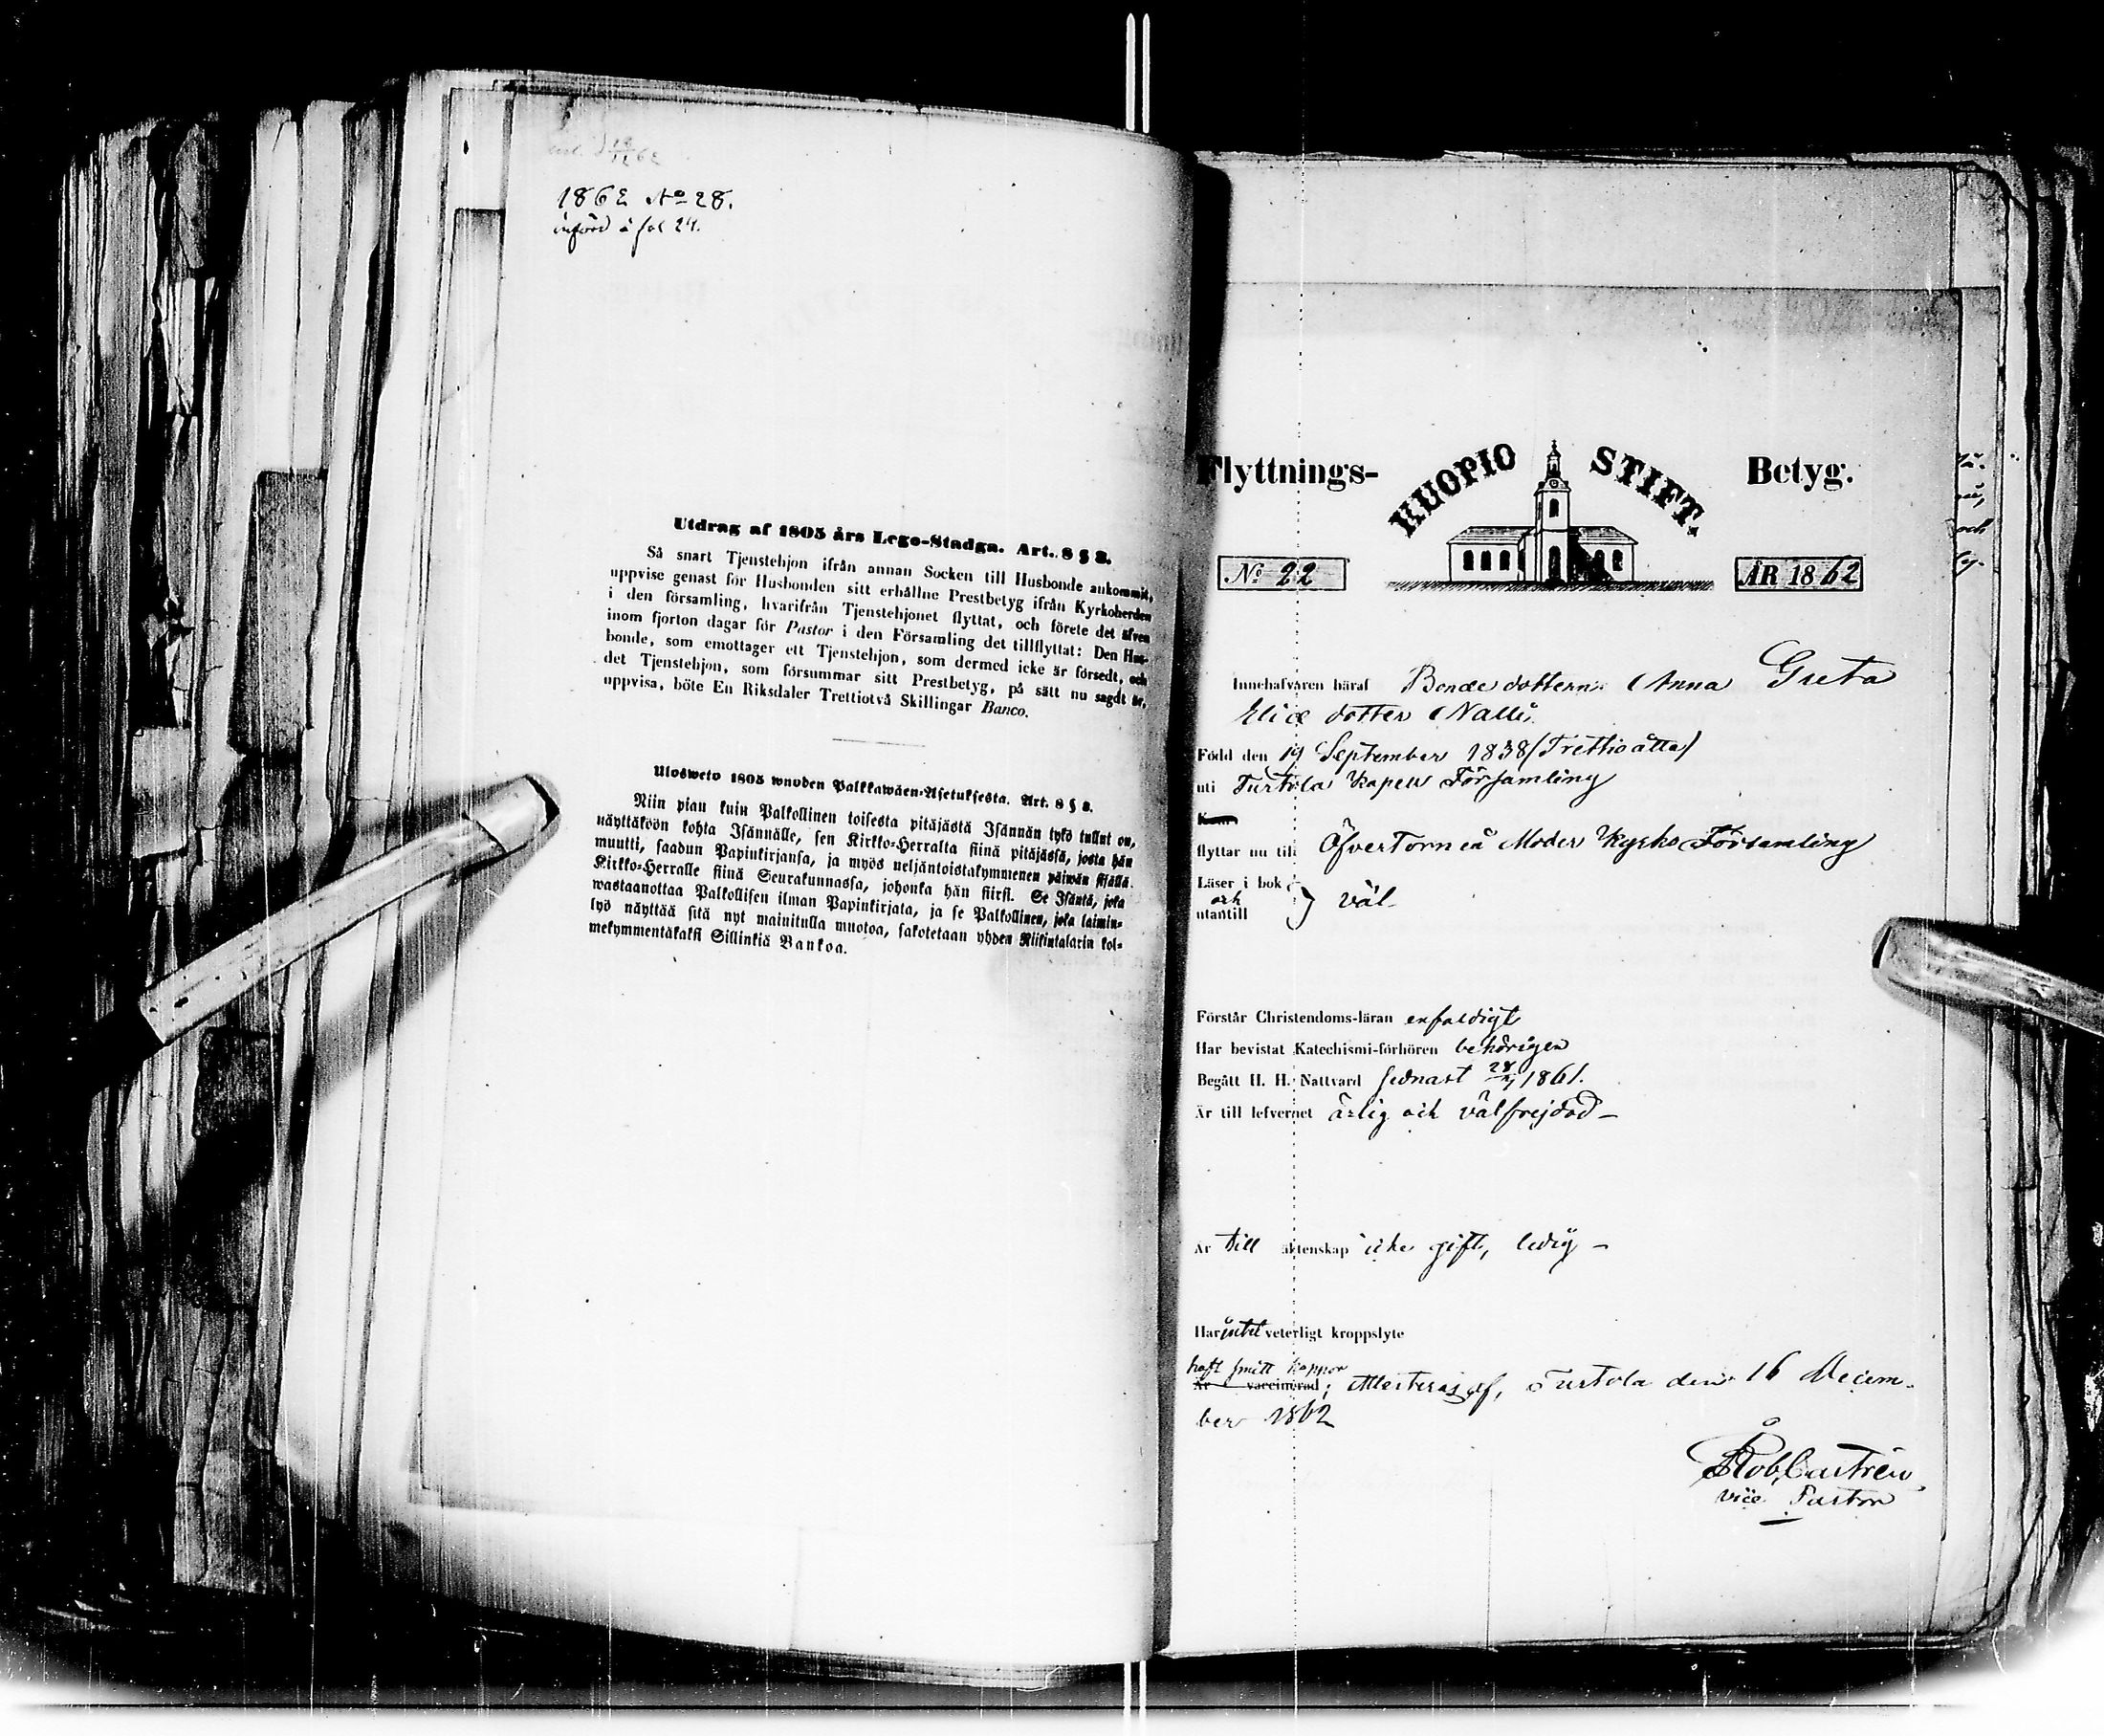 1862 No 28.
införd å fol 24.
Utdrag af 1805 års Lego-Stadga. Art. 8 § 2.
Så snart Tjenstehjon ifrån annan Socken till Husbonde ankommit,
uppvise genast för Husbonden sitt erhållne Prestbetyg ifrån Kyrkoherden
i den församling, hvarifrån Tjenstehjonet flyttat, och förete det äfven
inom fjorton dagar för Pastor i den Församling det tillflyttat: Den Hus-
bonde, som emottager ett Tjenstehjon, som dermed icke är försedt, och
det Tjenstehjon, som försummar sitt Prestbetyg, på sätt nu sagdt är,
uppvisa, böte En Riksdaler Trettiotvå Skillingar Banco.
Ulosweto 1805 wuoden Palkkawäen-Asetuksesta. Art. 8 § 2.
Niin pian kuin Palkollinen toisesta pitäjästä Isännän tykö tullut on,
näyttäköön kohta Isännälle, sen Kirkko-Herralta siinä pitäjässä, josta hän
muutti, saadun Papinkirjansa, ja myös neljäntoistakymmenen päiwän sisällä
Kirkko-Herralle siinä Seurakunnassa, johonka hän siirsi. Se Isäntä, joka
wastaanottaa Palkollisen ilman Papinkirjata, ja se Palkollinen, joka laimin-
lyö näyttää sitä nyt mainitulla muotoa, sakotetaan yhden Riikintalarin kol-
mekymmentäkaksi Sillinkiä Bankoa.
Flyttnings- KUOPIO STIFT. Betyg.
No 22 ÅR 1862
Innehafvaren häraf Bondedottern Anna Greta
Elias dotter Nalli.
Född den 19 September 1838 (Trettioåtta)
uti Turtola Kapell Församling
Kom
flyttar nu till Öfvertorneå Moder Kyrko Församling
Läser i bok
och } väl
utantill
Förstår Christendoms-läran enfaldigt
Har bevistat Katechismi-förhören behörigen
Begått H. H. Nattvard sednast 28/7 1861.
Är till lefvernet ärlig och välfrejdad –
Är till äktenskap icke gift, ledig –
Har intet veterligt kroppslyte
haft smitt koppor
Är vaccinerad; Attesteras af, Turtola den 16 Decem-
ber 1862
Rob Castrén
vice Pastor